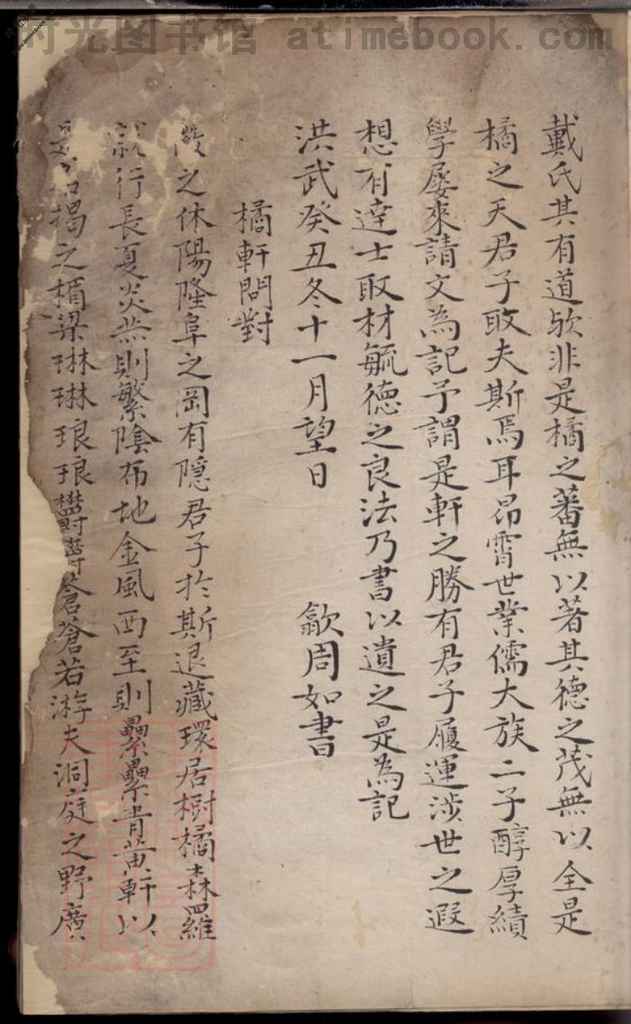 时光图书馆 atimebook.com
戴氏其有道欤非是橘之蕃無以著其德之茂無以全是
橘之天君子敢夫斯焉耳昂霄世業儒大族二子醇厚績
學屡來請文為記予謂是軒之勝有君子履運涉世之遐
想有逹士取材毓德之良法乃書以遺之是為記
洪武癸丑冬十一月望日 歙周如書
橘軒問對
之休陽隆阜之岡有隱君子於斯退藏環居樹橘森羅
行長夏炎炎則繁陰布地金風西至則纍纍青黄軒以
楬之楯梁琳琳琅琅欝欝蒼蒼若游夫洞庭之野廣